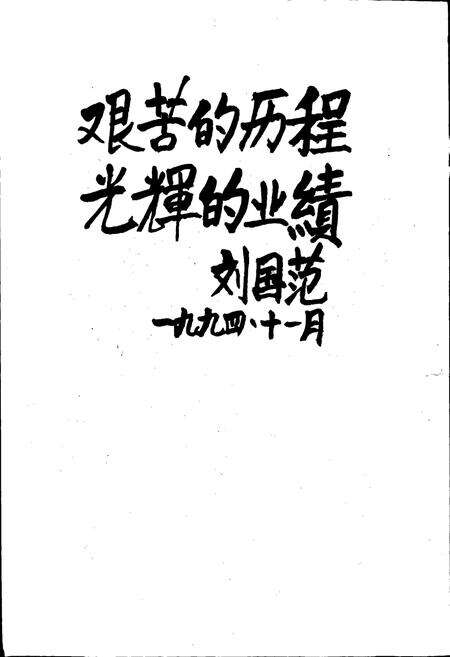 艰苦的历程
光輝的业績
刘国范
一九九四、十一月